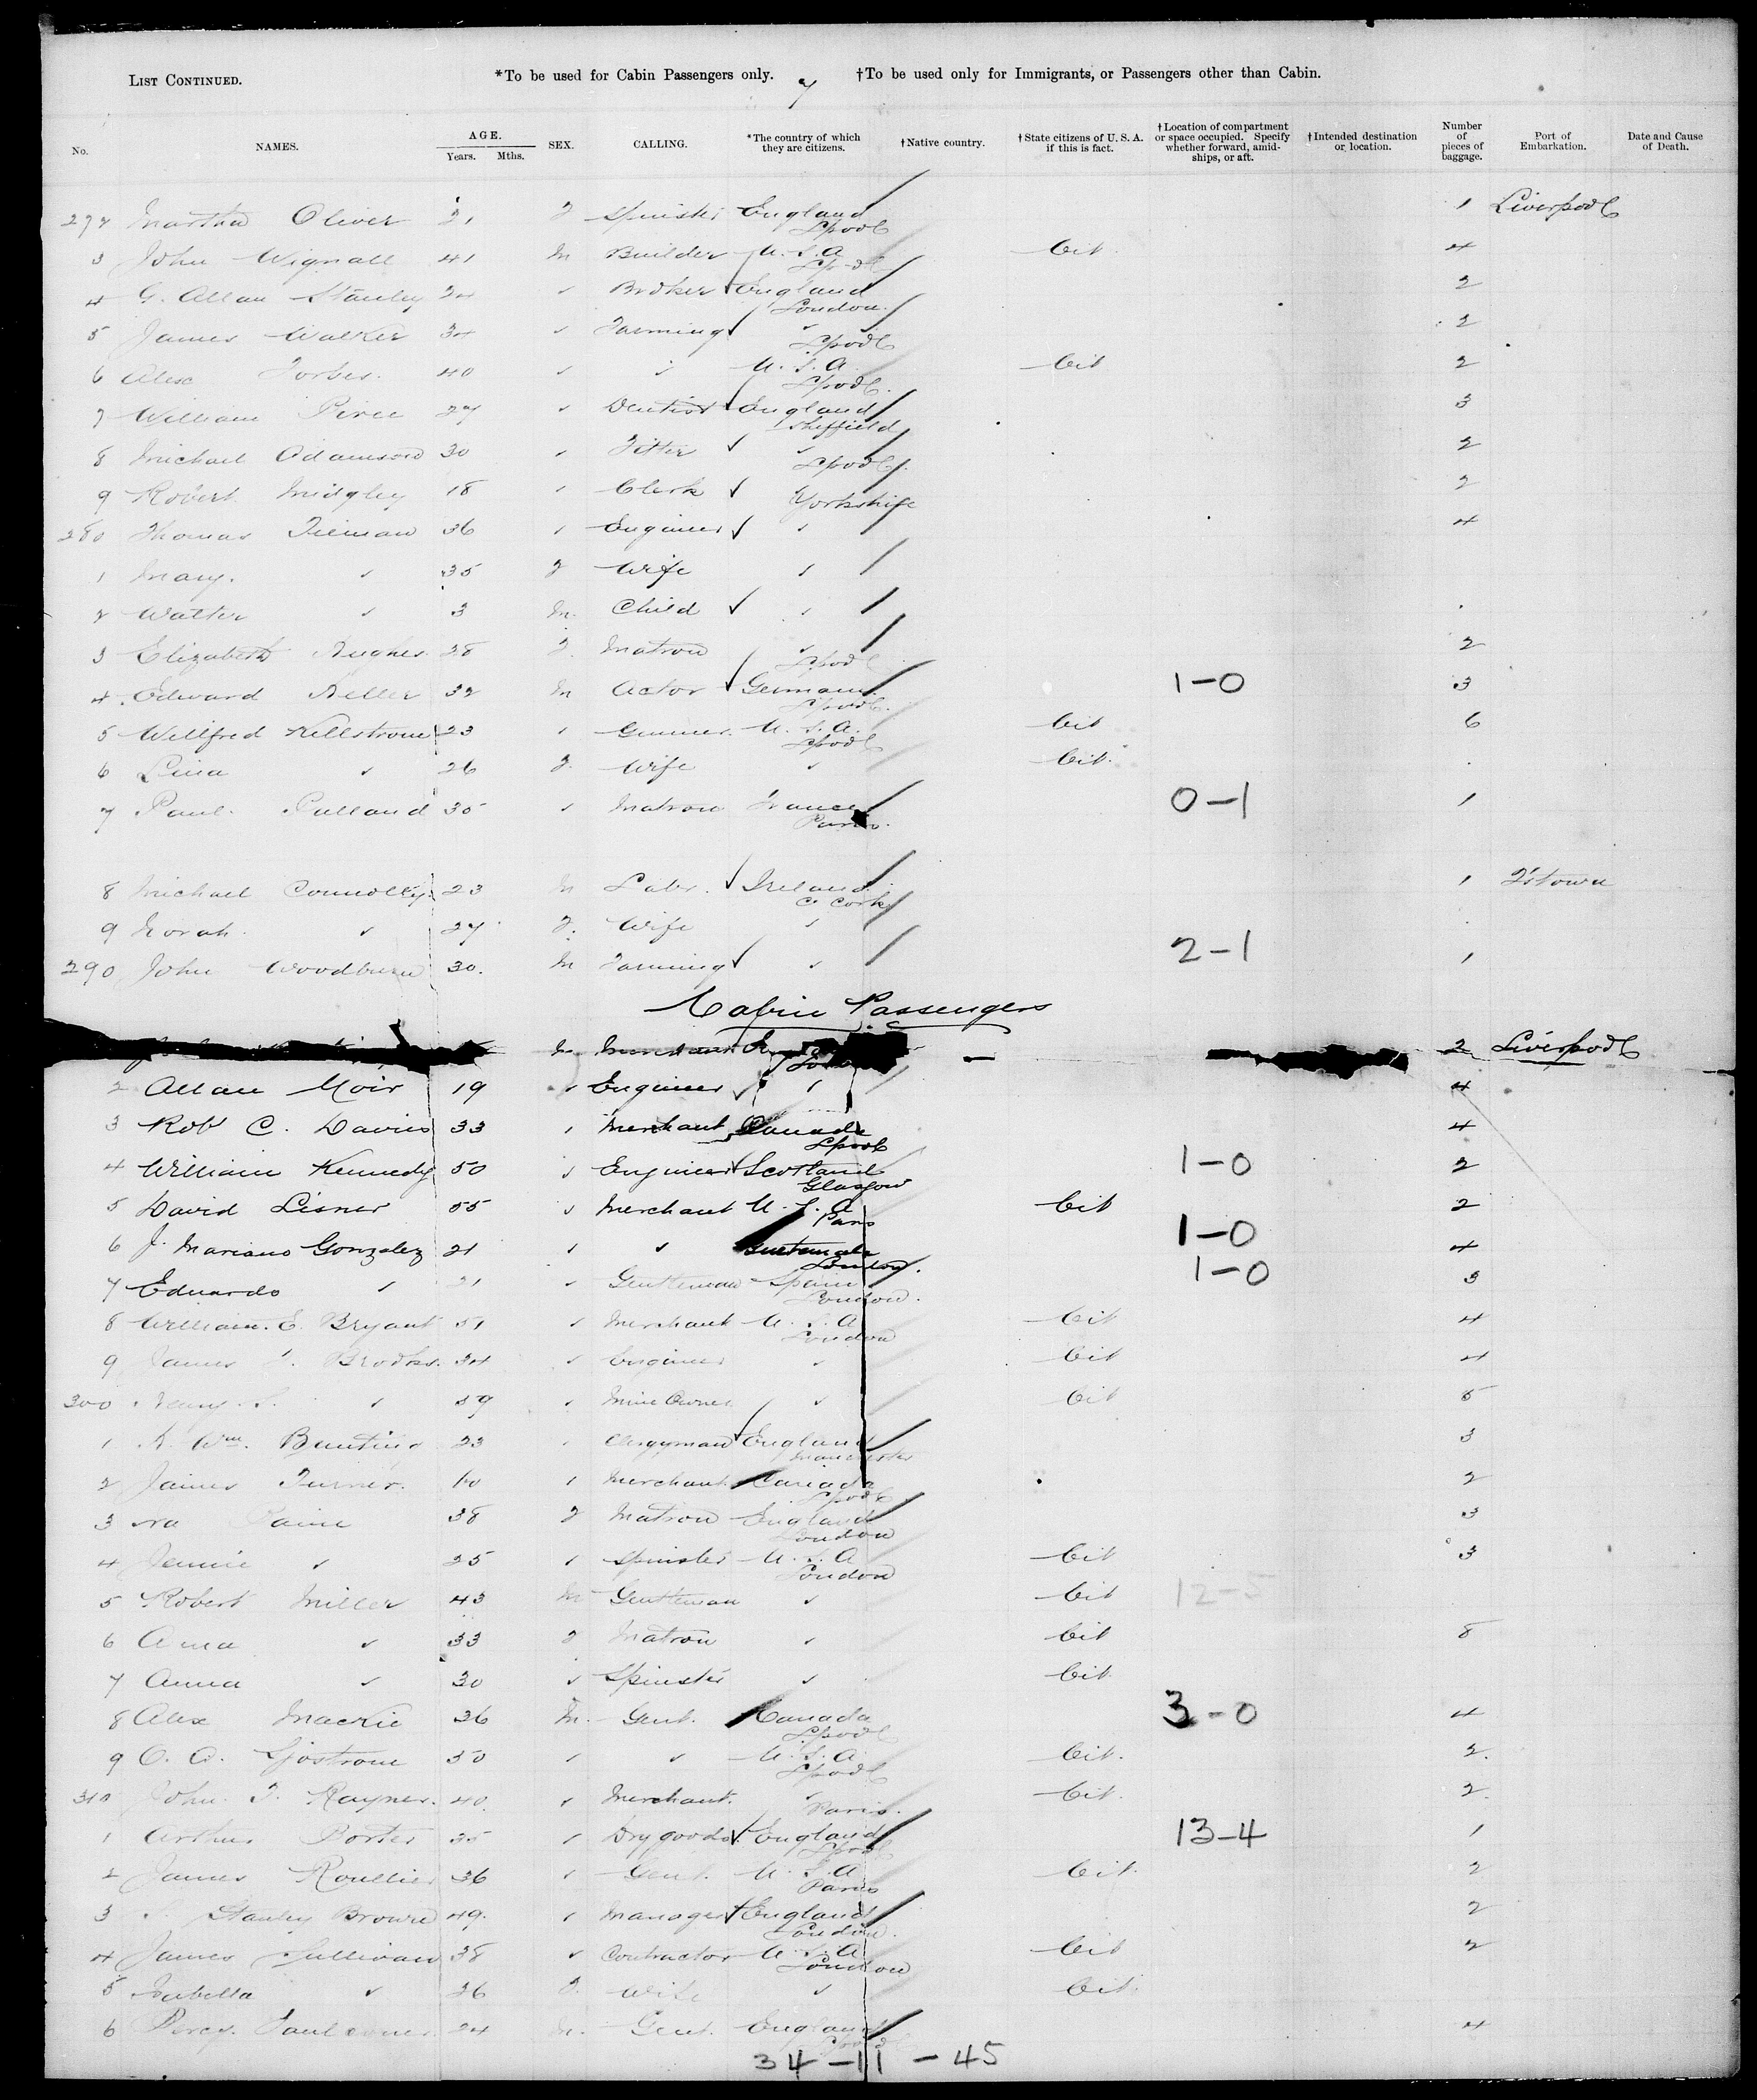 LIST CONTINUED. *To be used for Cabin Passengers only. 7 †To be used only for Immigrants, or Passengers other than Cabin.
No. NAMES. AGE. Years. Mths. SEX. CALLING. *The country of which they are citizens. †Native country. †State citizens of U. S. A. if this is fact. †Location of compartment or space occupied. Specify whether forward, amid-ships, or aft. †Intended destination or location. Number of pieces of baggage. Port of Embarkation. Date and Cause of Death.
272 Martha Oliver 21 F Spinster England Lpool 1 Liverpool
3 John Wignall 41 M Builder U.S.A Lpool Cit 4
4 G. Allan Stanley 24 ✓ Broker England London. 2
5 James Walker 34 ✓ Farming ✓ Lpool 2
6 Alex Forbes. 40 ✓ ✓ U.S.A. Lpool. Cit 2
7 William Pirce 27 ✓ Dentist England Sheffield 3
8 Michael Adamson 30 ✓ Fitter ✓ Lpool 2
9 Robert Midgley 18 ✓ Clerk Yorkshire 2
280 Thomas 36 ✓ Engineer ✓ 4
1 Mary. ✓ 35 F Wife ✓
2 Walter ✓ 3 M. Child ✓
3 Elizabeth Hughes 28 F. Matron ✓ Lpool 2
4 Edward Keller 32 M Actor Germany Lpool. 1-0 3
5 Willfred Kellstrom 23 ✓ U.S.A. Lpool Cit 6
6 Lina ✓ 26 F. Wife ✓ Cit.
7 Paul. 35 ✓ Matron France Paris. 0-1 1
8 Michael Connolly. 23 M Labr. Ireland. Co Cork 1 Q'stown
9 Norah. ✓ 27 F. Wife ✓
290 John Woodburn 30. M Farming ✓ 2-1 1
Cabin Passengers
M Merchant 2 Liverpool
2 Allan Moir 19 ✓ Engineer ✓ 4
3 Robt C. Davies 33 ✓ Merchant Canada Lpool 4
4 William Kennedy 50 ✓ Engineer Scotland Glasgow 1-0 2
5 David Lisner 55 ✓ Merchant U.S.A Paris Cit 2
6 J. Mariano Gonzalez 21 ✓ ✓ Guatemala London. 1-0 4
7 Eduardo ✓ 21 ✓ Gentleman Spain London. 1-0 3
8 William. E. Bryant 51 ✓ Merchant U.S.A London Cit 4
9 James Brooks. 34 ✓ Engineer ✓ Cit 4
300 Henry. S. ✓ 59 ✓ Mine Owner ✓ Cit 5
1 Wm. Bunting 23 ✓ Clergyman England Manchester 3
2 James Turner. 60 ✓ Merchant. Canada Lpool 2
3 Paine 38 F Matron England London 3
4 Jennie ✓ 25 ✓ Spinster U.S.A London Cit 3
5 Robert Miller 43 M Gentleman ✓ Cit 12-5
6 Anna ✓ 33 F Matron ✓ Cit 8
7 Anna ✓ 30 ✓ Spinster ✓ Cit.
8 Alex Mackie 36 M. Gent. Canada Lpool 3-0 4
9 Sjostrom 30 ✓ ✓ U.S.A. Lpool Cit. 2.
310 John. T. Rayner. 40. ✓ Merchant. ✓ Paris. Cit. 2.
1 Arthur Porter 35 ✓ Dry goods England Lpool 13-4 1
2 James 36 ✓ Gent. U.S.A Paris Cit. 2
3 Stanley Browne 49. ✓ Manager England London. 2
4 James Sullivan 38 ✓ Contractor U.S.A London Cit 2
5 Isabella ✓ 36 F. Wife ✓ Cit.
6 Percy. 24 M. Gent. England 4
34-11-45